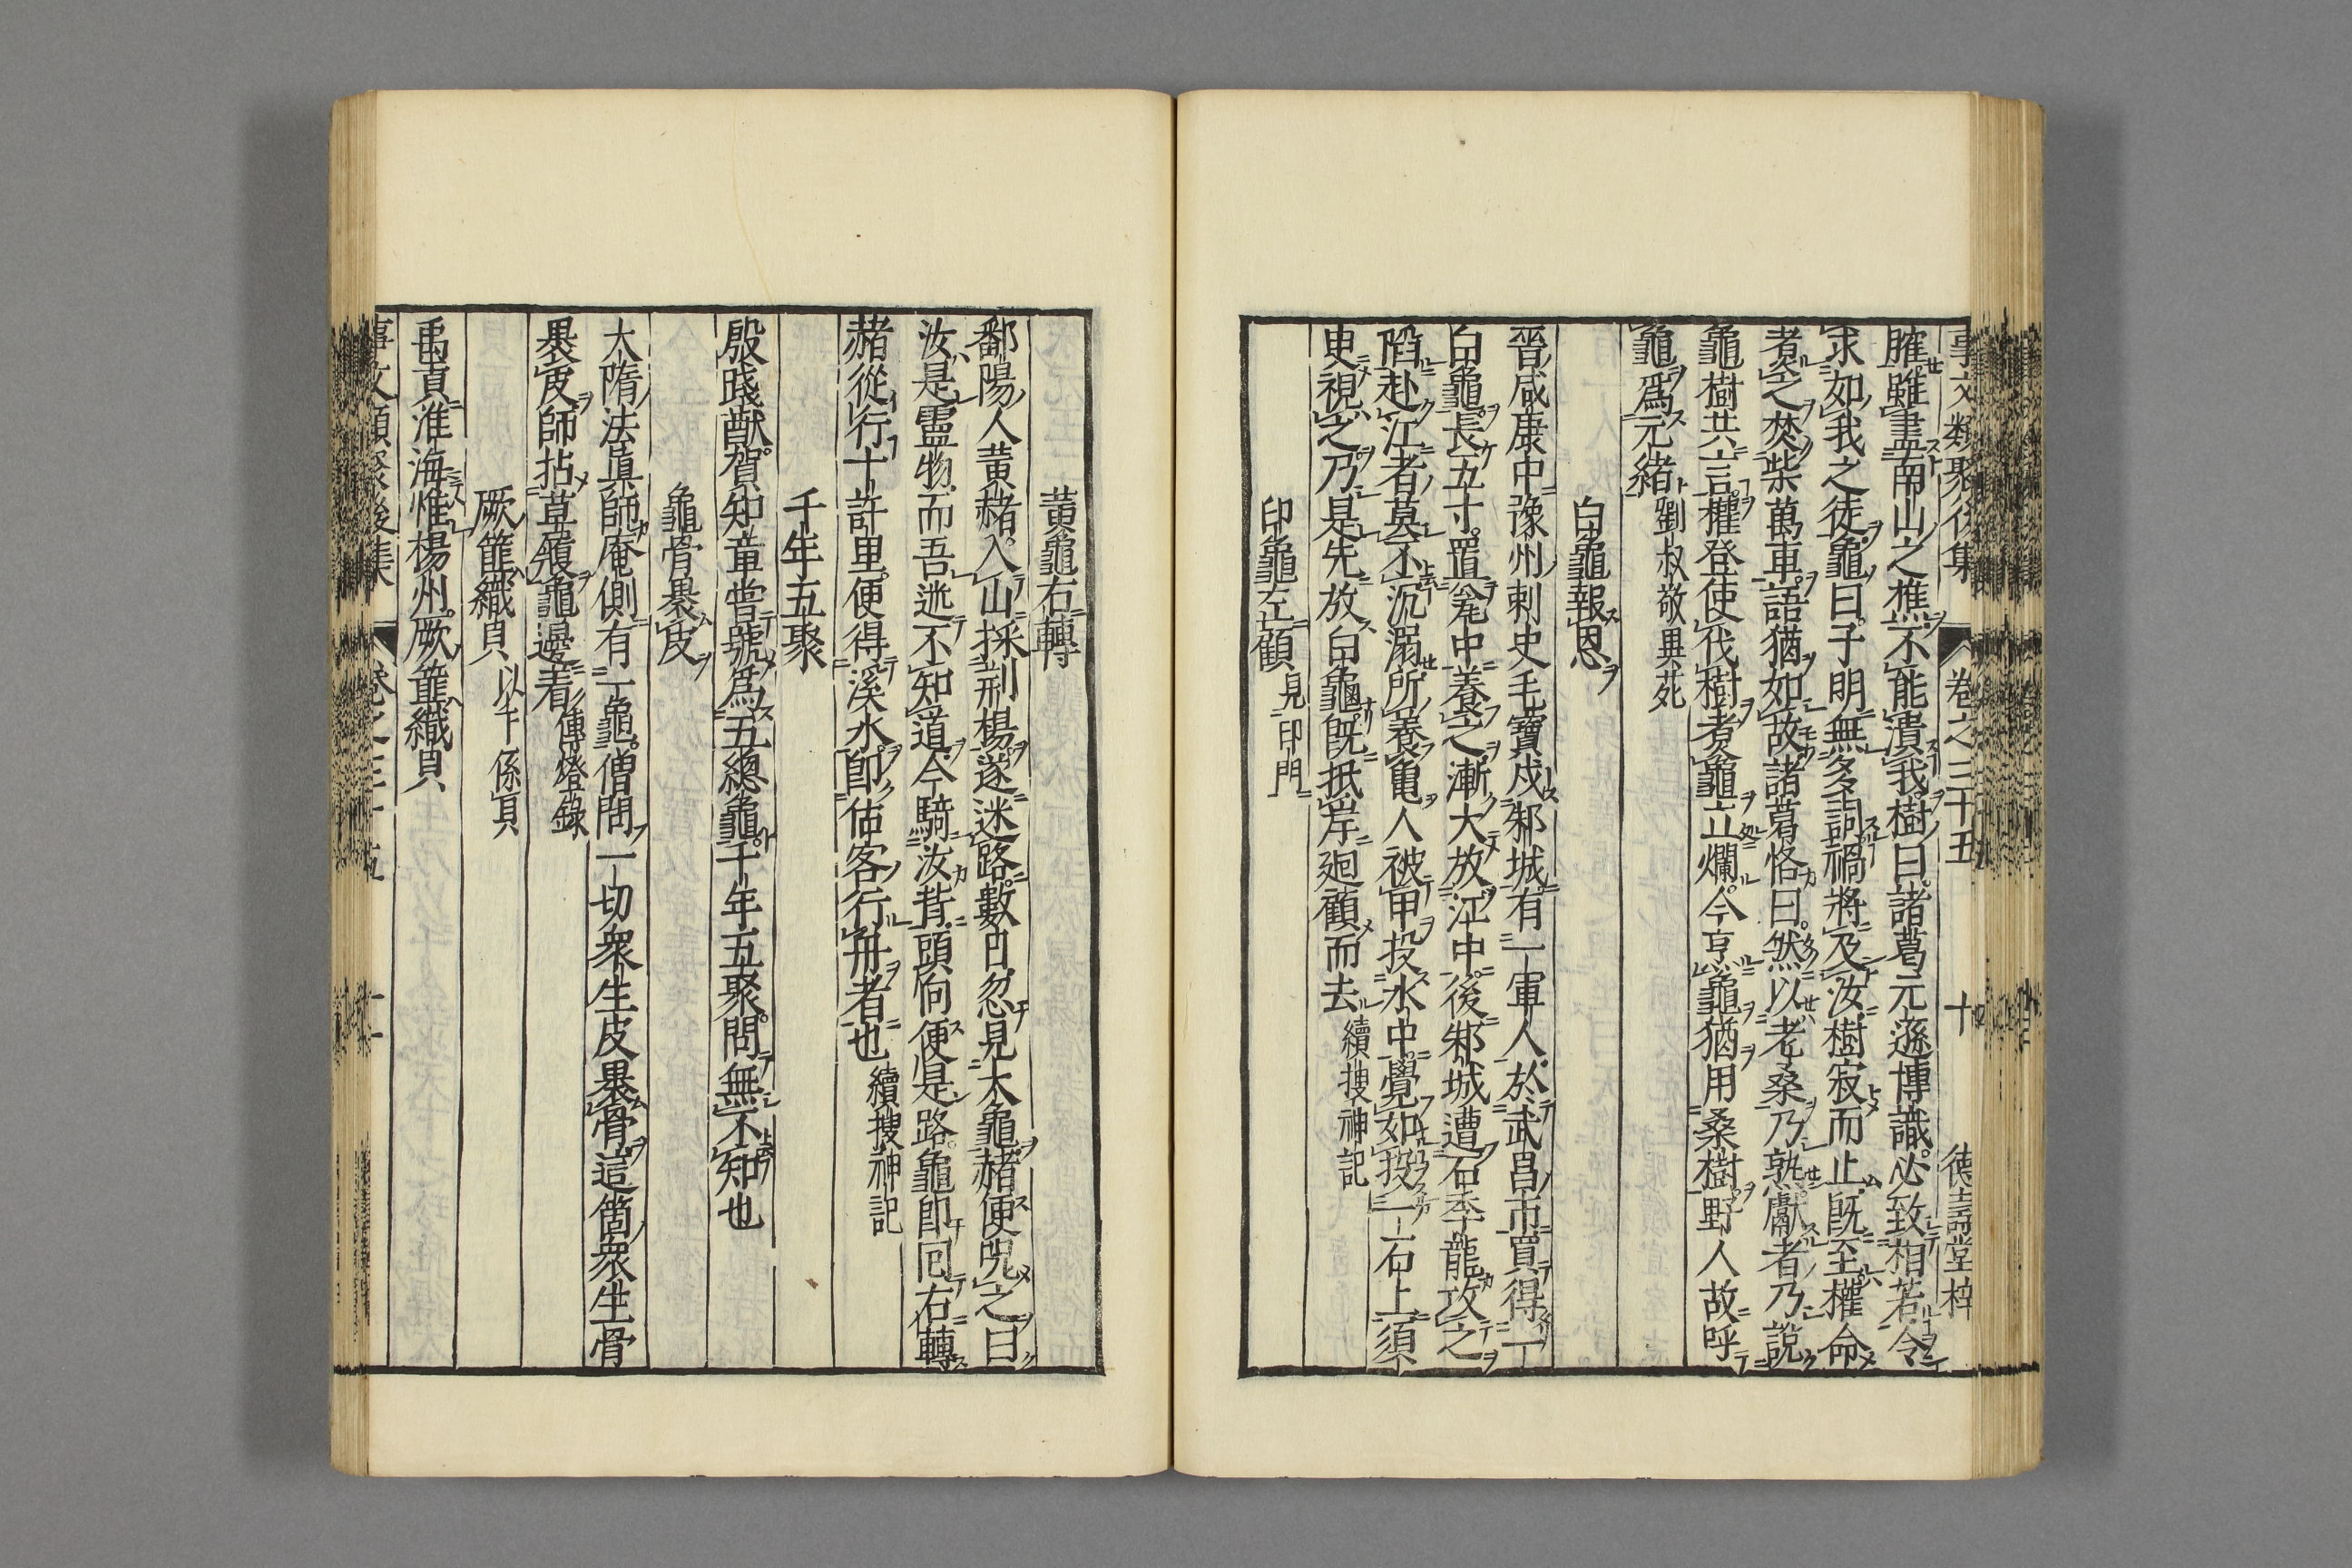 事文類聚後集 卷之三十五 十 德壽堂梓
臛雖盡南山之樵不能潰我樹曰諸葛元遜博識必致相若令
求如我之徒龜曰子明無多詞禍將及汝樹寂而止既至權命
煮之焚柴萬車語猶如故諸葛恪曰然以老桑乃熟獻者乃說
龜樹共言權登使伐樹煮龜立爛今烹龜猶用桑樹野人故呼
龜爲元緒 劉叔敬異苑
白龜報恩
晉咸康中豫州刺史毛寶戍邾城有一軍人於武昌市買得一
白龜長五寸置瓮中養之漸大放江中後邾城遭石季龍攻之
陷赴江者莫不沉溺所養龜人被甲投水中覺如投一石上須
臾視之乃是先放白龜既抵岸廻顧而去 續搜神記
印龜左顧 見印門
黃龜右轉
鄱陽人黃赭入山採荆楊遂迷路數日忽見大龜赭便呪之曰
汝是靈物而吾迷不知道今騎汝背頭向便是路龜即囘右轉
赭從行十許里便得溪水即估客行舟者也 續搜神記
千年五聚
殷踐猷賀知章嘗號爲五總龜千年五聚問無不知也
龜骨褁皮
大隋法真師庵側有一龜僧問一切衆生皮褁骨這箇衆生骨
褁皮師拈草履龜邊着 傳燈錄
厥篚織貝 以下係貝
禹貢淮海惟楊州厥篚織貝
事文類聚後集 卷之三十五 十一